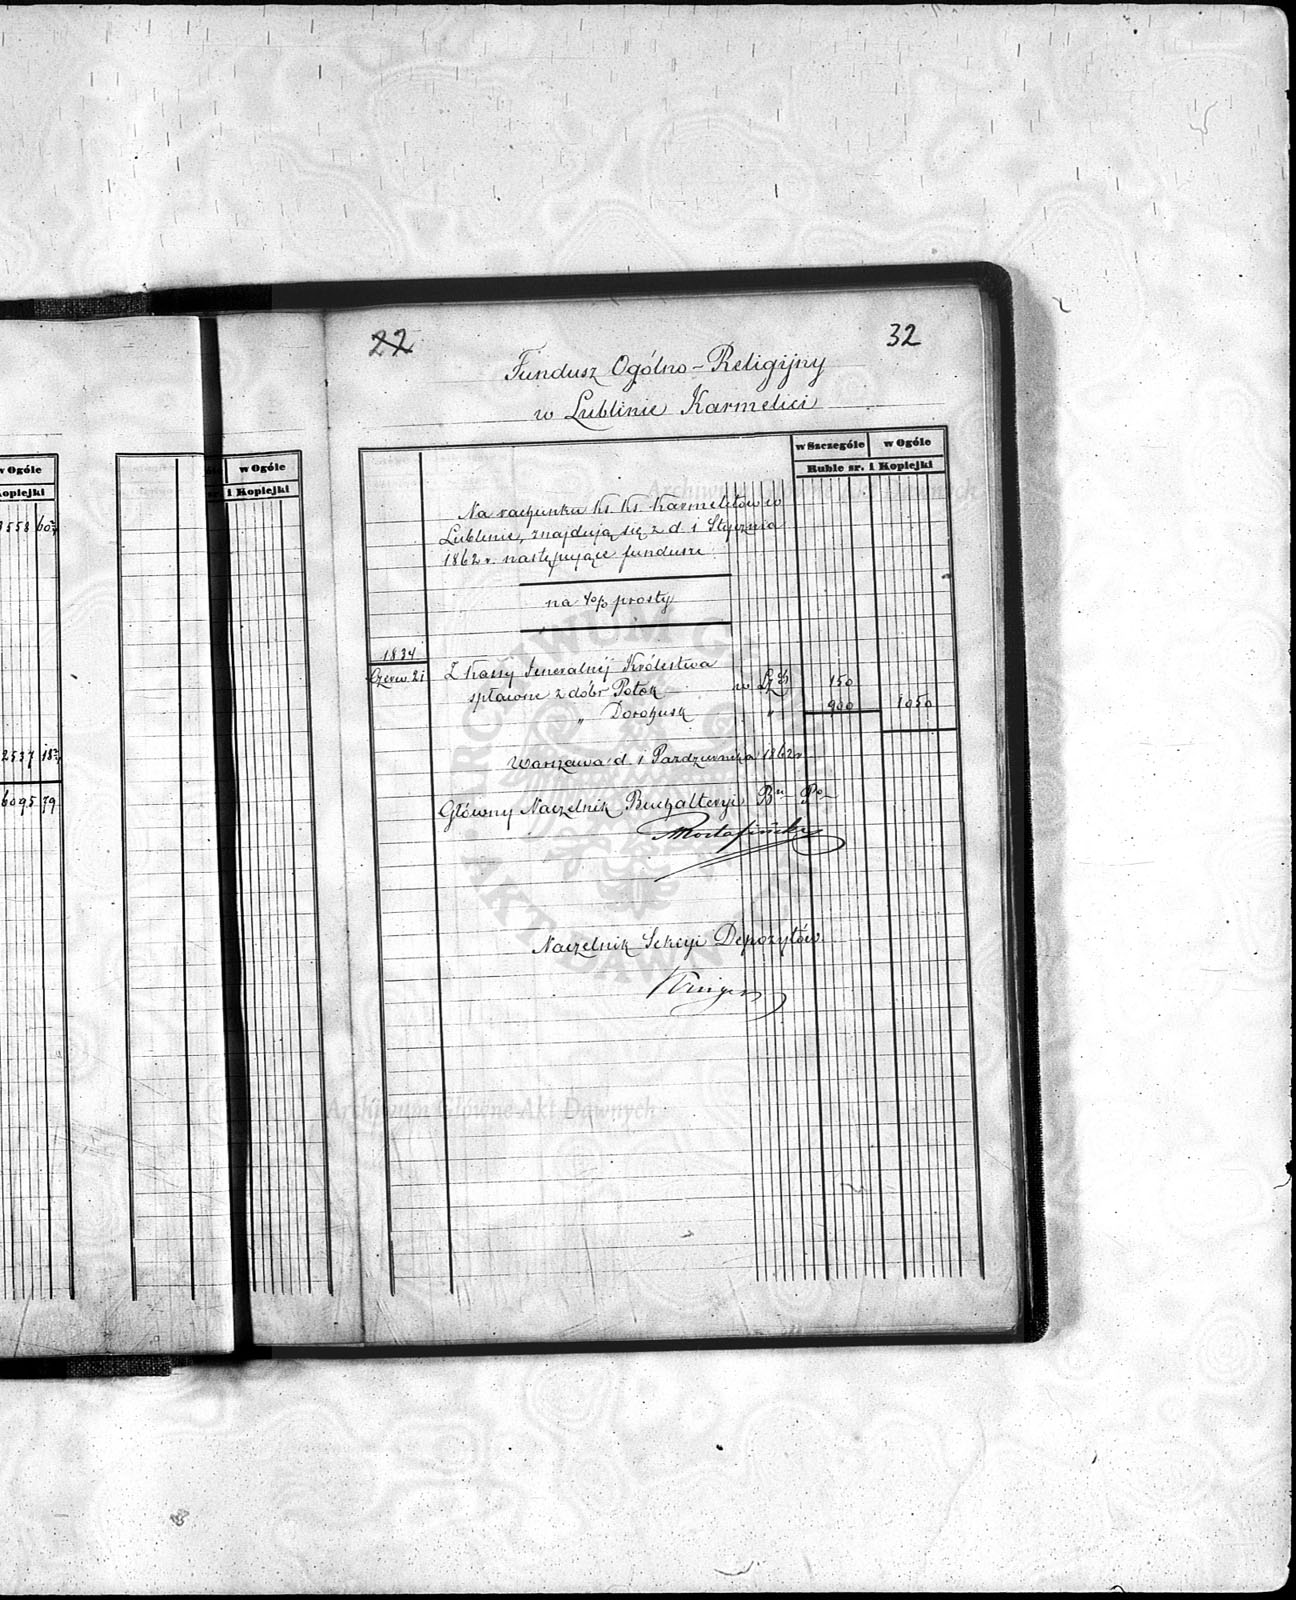 w Ogóle
Kopiejki
2558 60
2537 18
6095 79
w Ogóle
i Kopiejki
22
32
Fundusz Ogólno-Religijny
w Lublinie Karmelici
w Szczególe w Ogóle
Ruble sr. i Kopiejki
Na rachunku ks. ks. Karmelitów w
Lublinie, znajdują się z d. 1 Stycznia
1862 r. następujące fundusze
na 4% prosty
1834
Czerw. 21 Z Kassy Jeneralnéj Królestwa
spłacone z dóbr Potok w 150
" Dorohusk " 900 1050
Warszawa d. 1 Pazdziernika 1862 r.
Główny Naczelnik Buchalteryi
Naczelnik Sekcyi Depozytów
ARCHIWUM GŁÓWNE AKT DAWNYCH
Archiwum Główne Akt Dawnych
Archiwum Główne Akt Dawnych